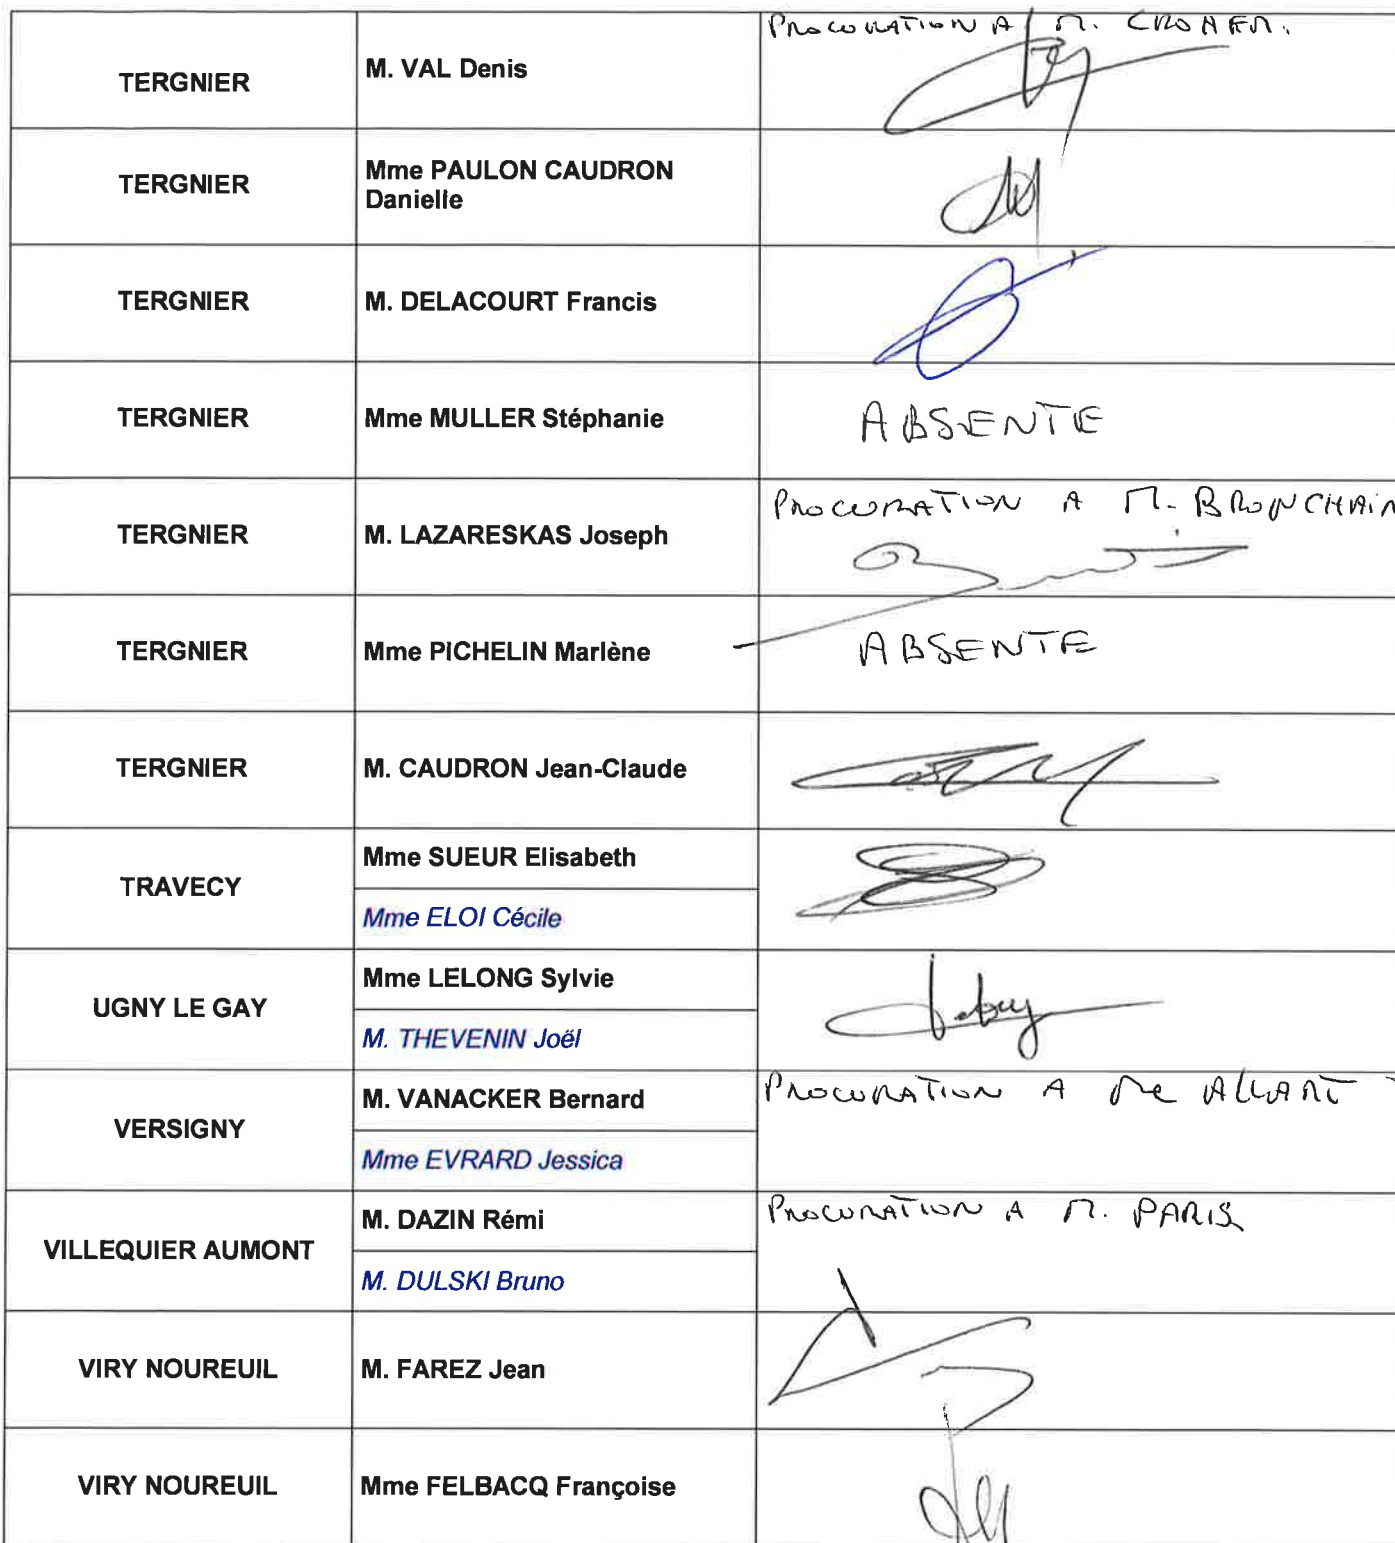 PROCURATION A M. CROHEM.
TERGNIER
M. VAL Denis
TERGNIER
Mme PAULON CAUDRON
Danielle
TERGNIER
M. DELACOURT Francis
TERGNIER
Mme MULLER Stéphanie
ABSENTE
PROCURATION A M. BRONCHAIN
TERGNIER
M. LAZARESKAS Joseph
TERGNIER
Mme PICHELIN Marlène
ABSENTE
TERGNIER
M. CAUDRON Jean-Claude
TRAVECY
Mme SUEUR Elisabeth
Mme ELOI Cécile
UGNY LE GAY
Mme LELONG Sylvie
M. THEVENIN Joël
VERSIGNY
M. VANACKER Bernard
PROCURATION A Me ALLART
Mme EVRARD Jessica
VILLEQUIER AUMONT
M. DAZIN Rémi
PROCURATION A M. PARIS
M. DULSKI Bruno
VIRY NOUREUIL
M. FAREZ Jean
VIRY NOUREUIL
Mme FELBACQ Françoise